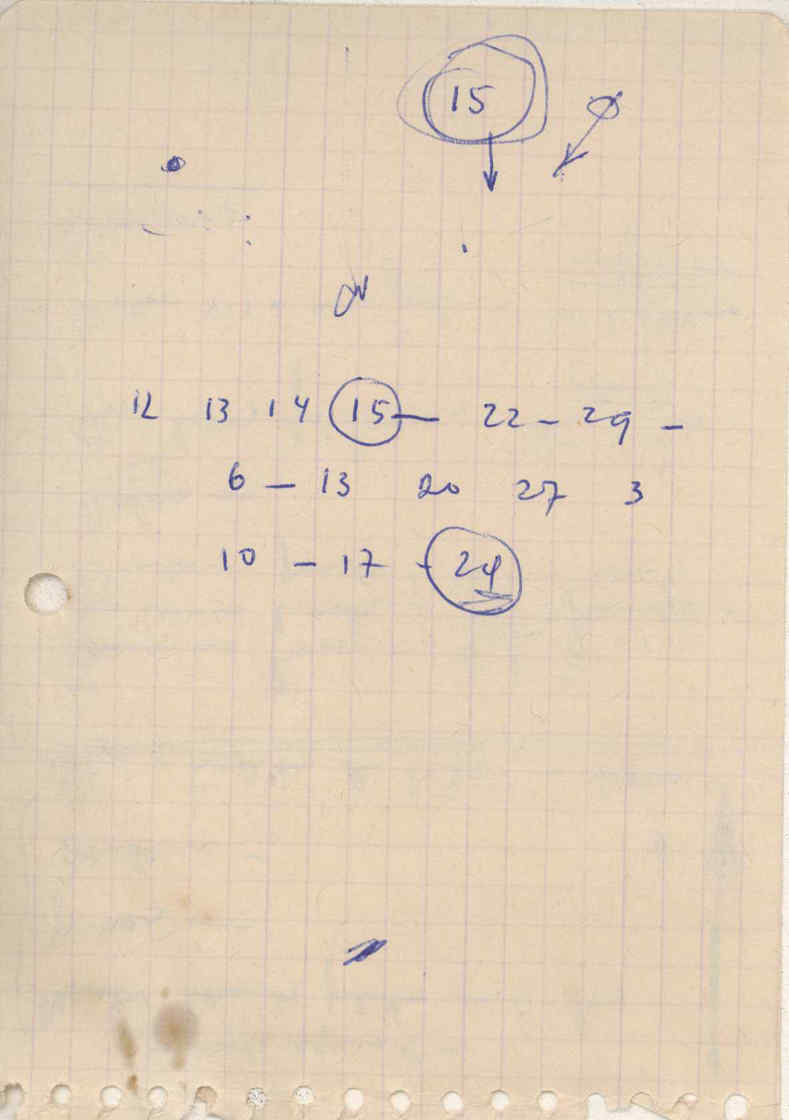 15
12 13 14 15 — 22 - 29 -
6 — 13 20 27 3
10 - 17 - 24